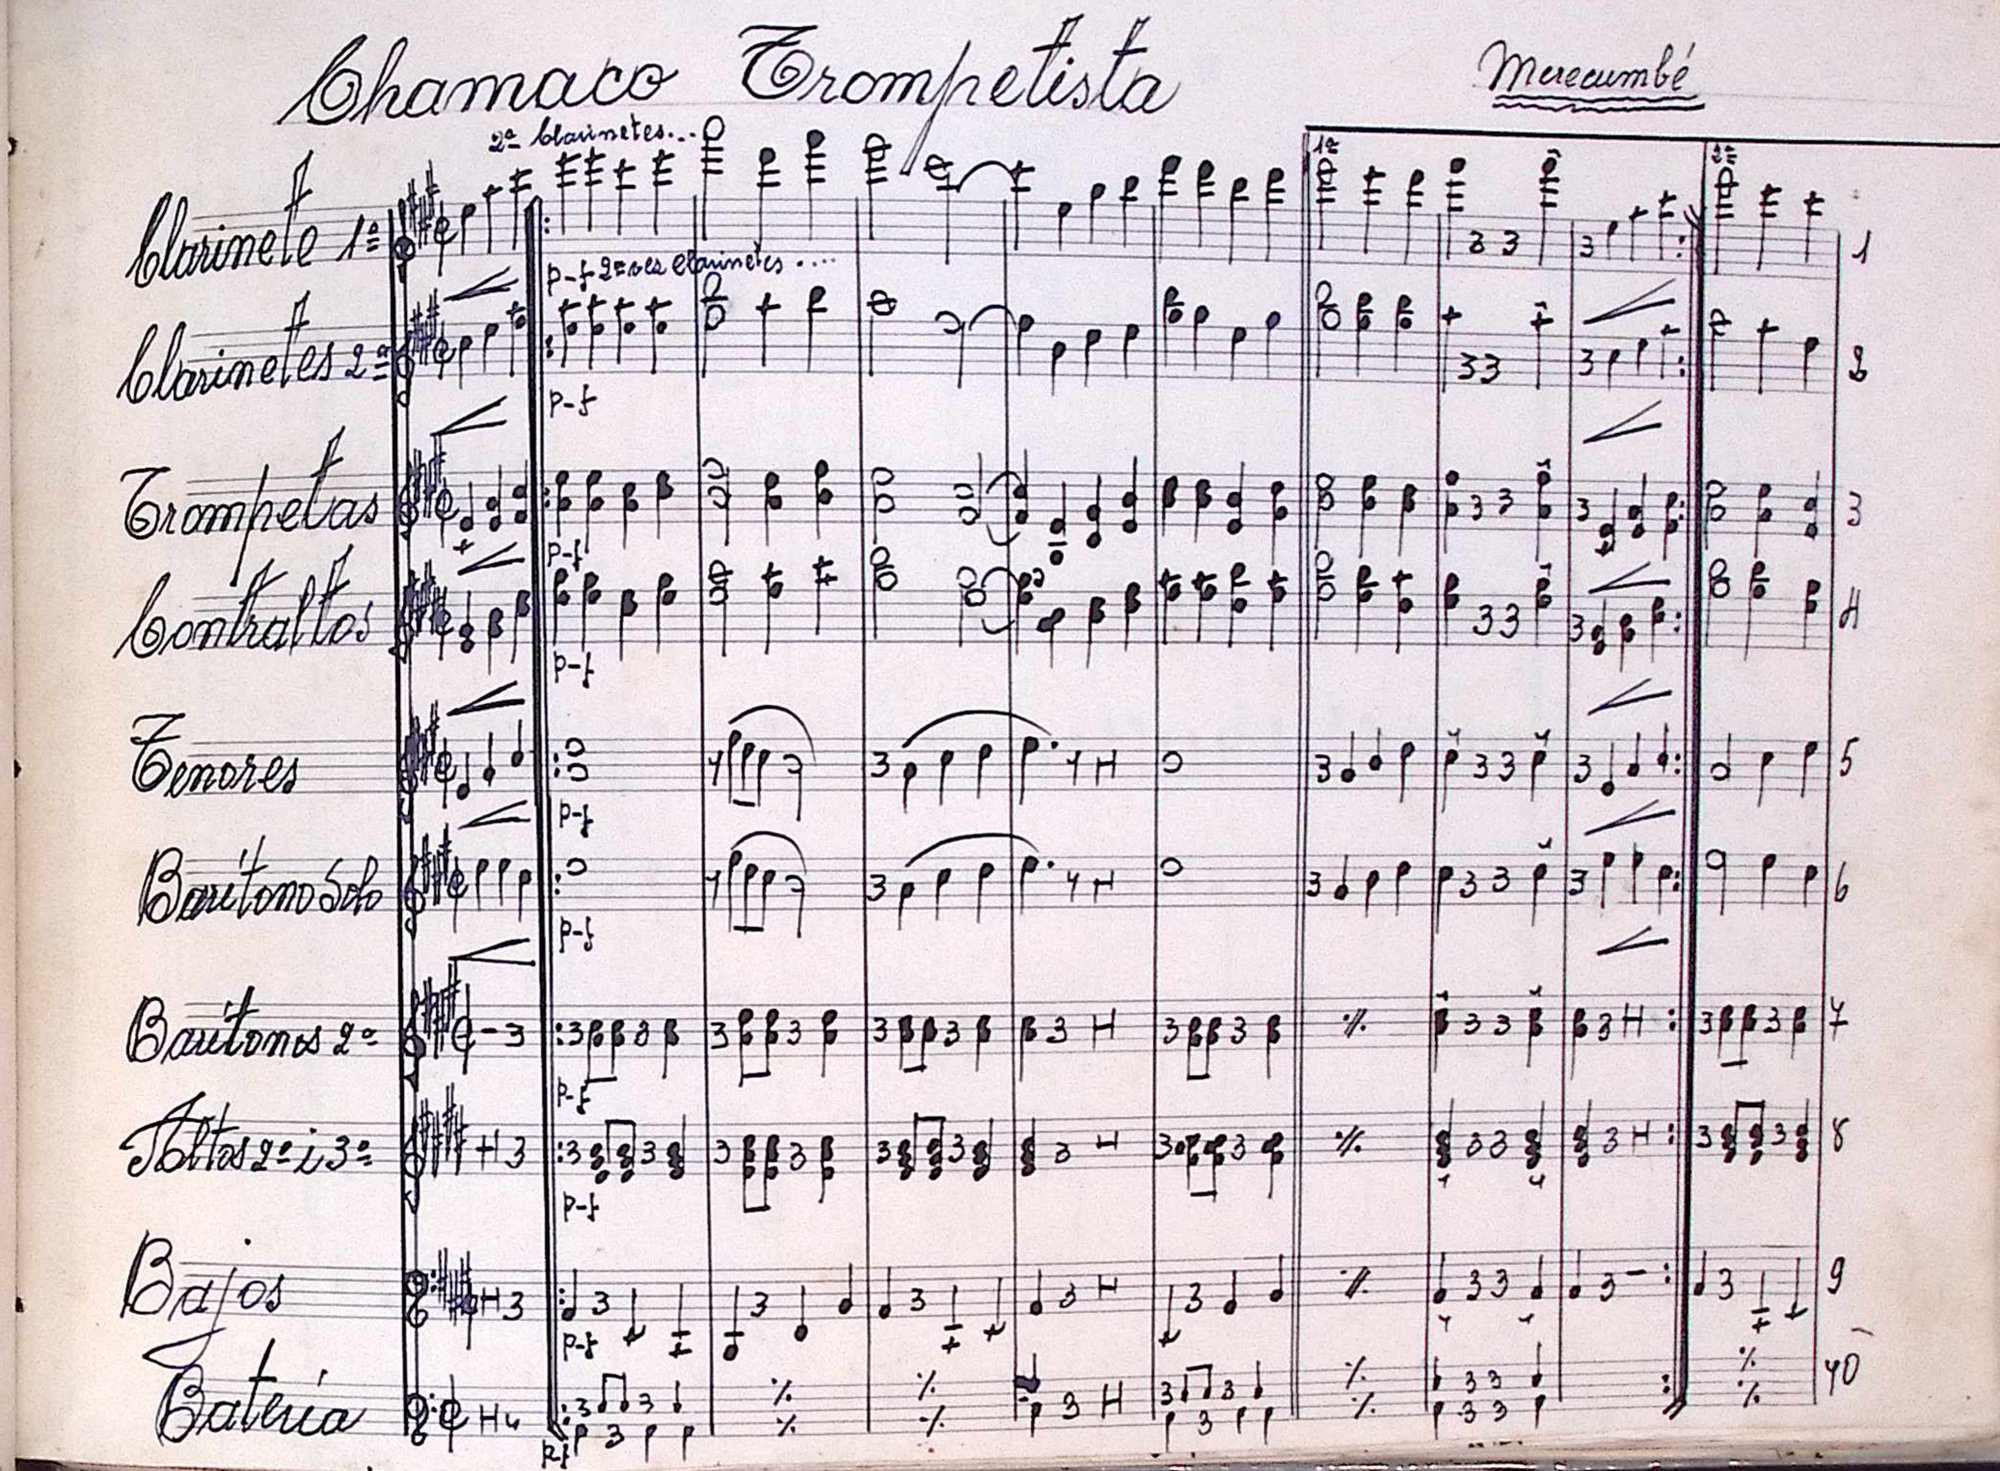 Chamaco Trompetista
Merecumbé
2ª Clarinetes...
1ª
2ª
Clarinete 1ª
1
p-f 2ª ves Clarinetes ....
Clarinetes 2ª
2
p-f
Trompetas
3
p-f
Contraltos
4
p-f
Tenores
5
p-f
Barítono Solo
6
p-f
Barítonos 2º
7
p-f
Altos 2º i 3º
8
p-f
Bajos
9
p-f
Batería
10
p-f